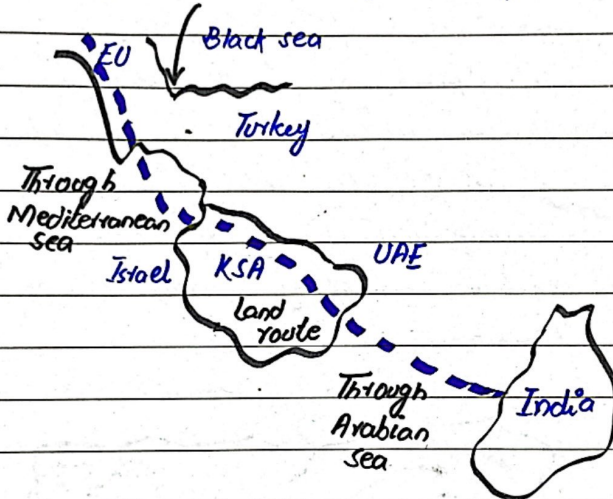 EU
Black sea
Turkey
Through
Mediterranean
sea
Israel
KSA
UAE
Land
route
Through
Arabian
sea
India